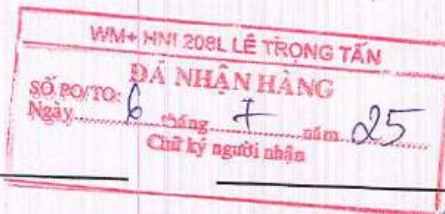 WM+ HNI 208L LÊ TRỌNG TẤN
ĐÃ NHẬN HÀNG
SỐ PO/TO:
Ngày 6 tháng 7 năm 25
Chữ ký người nhận